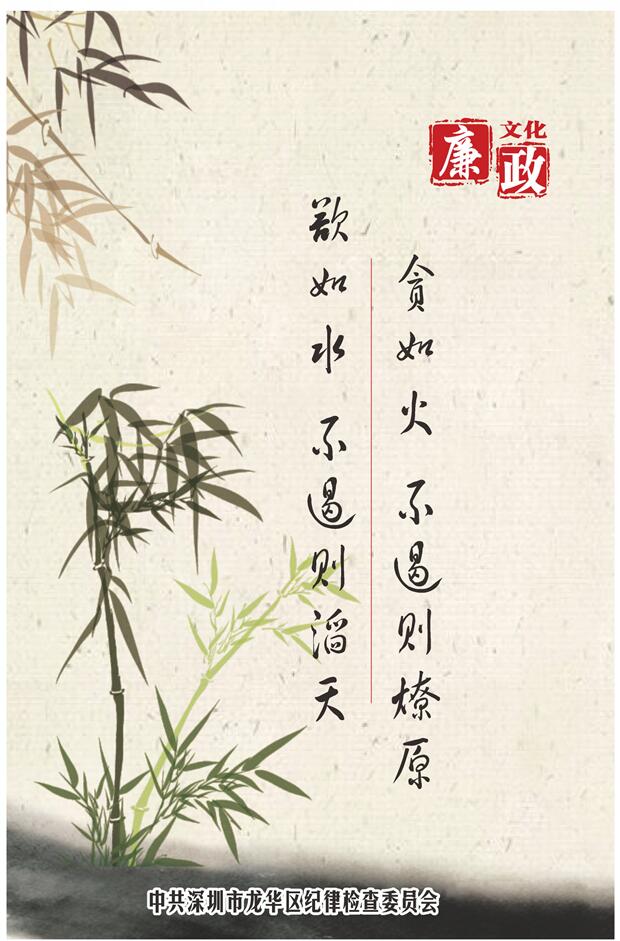 廉政文化
贪如火 不遏则燎原
欲如水 不遏则滔天
中共深圳市龙华区纪律检查委员会